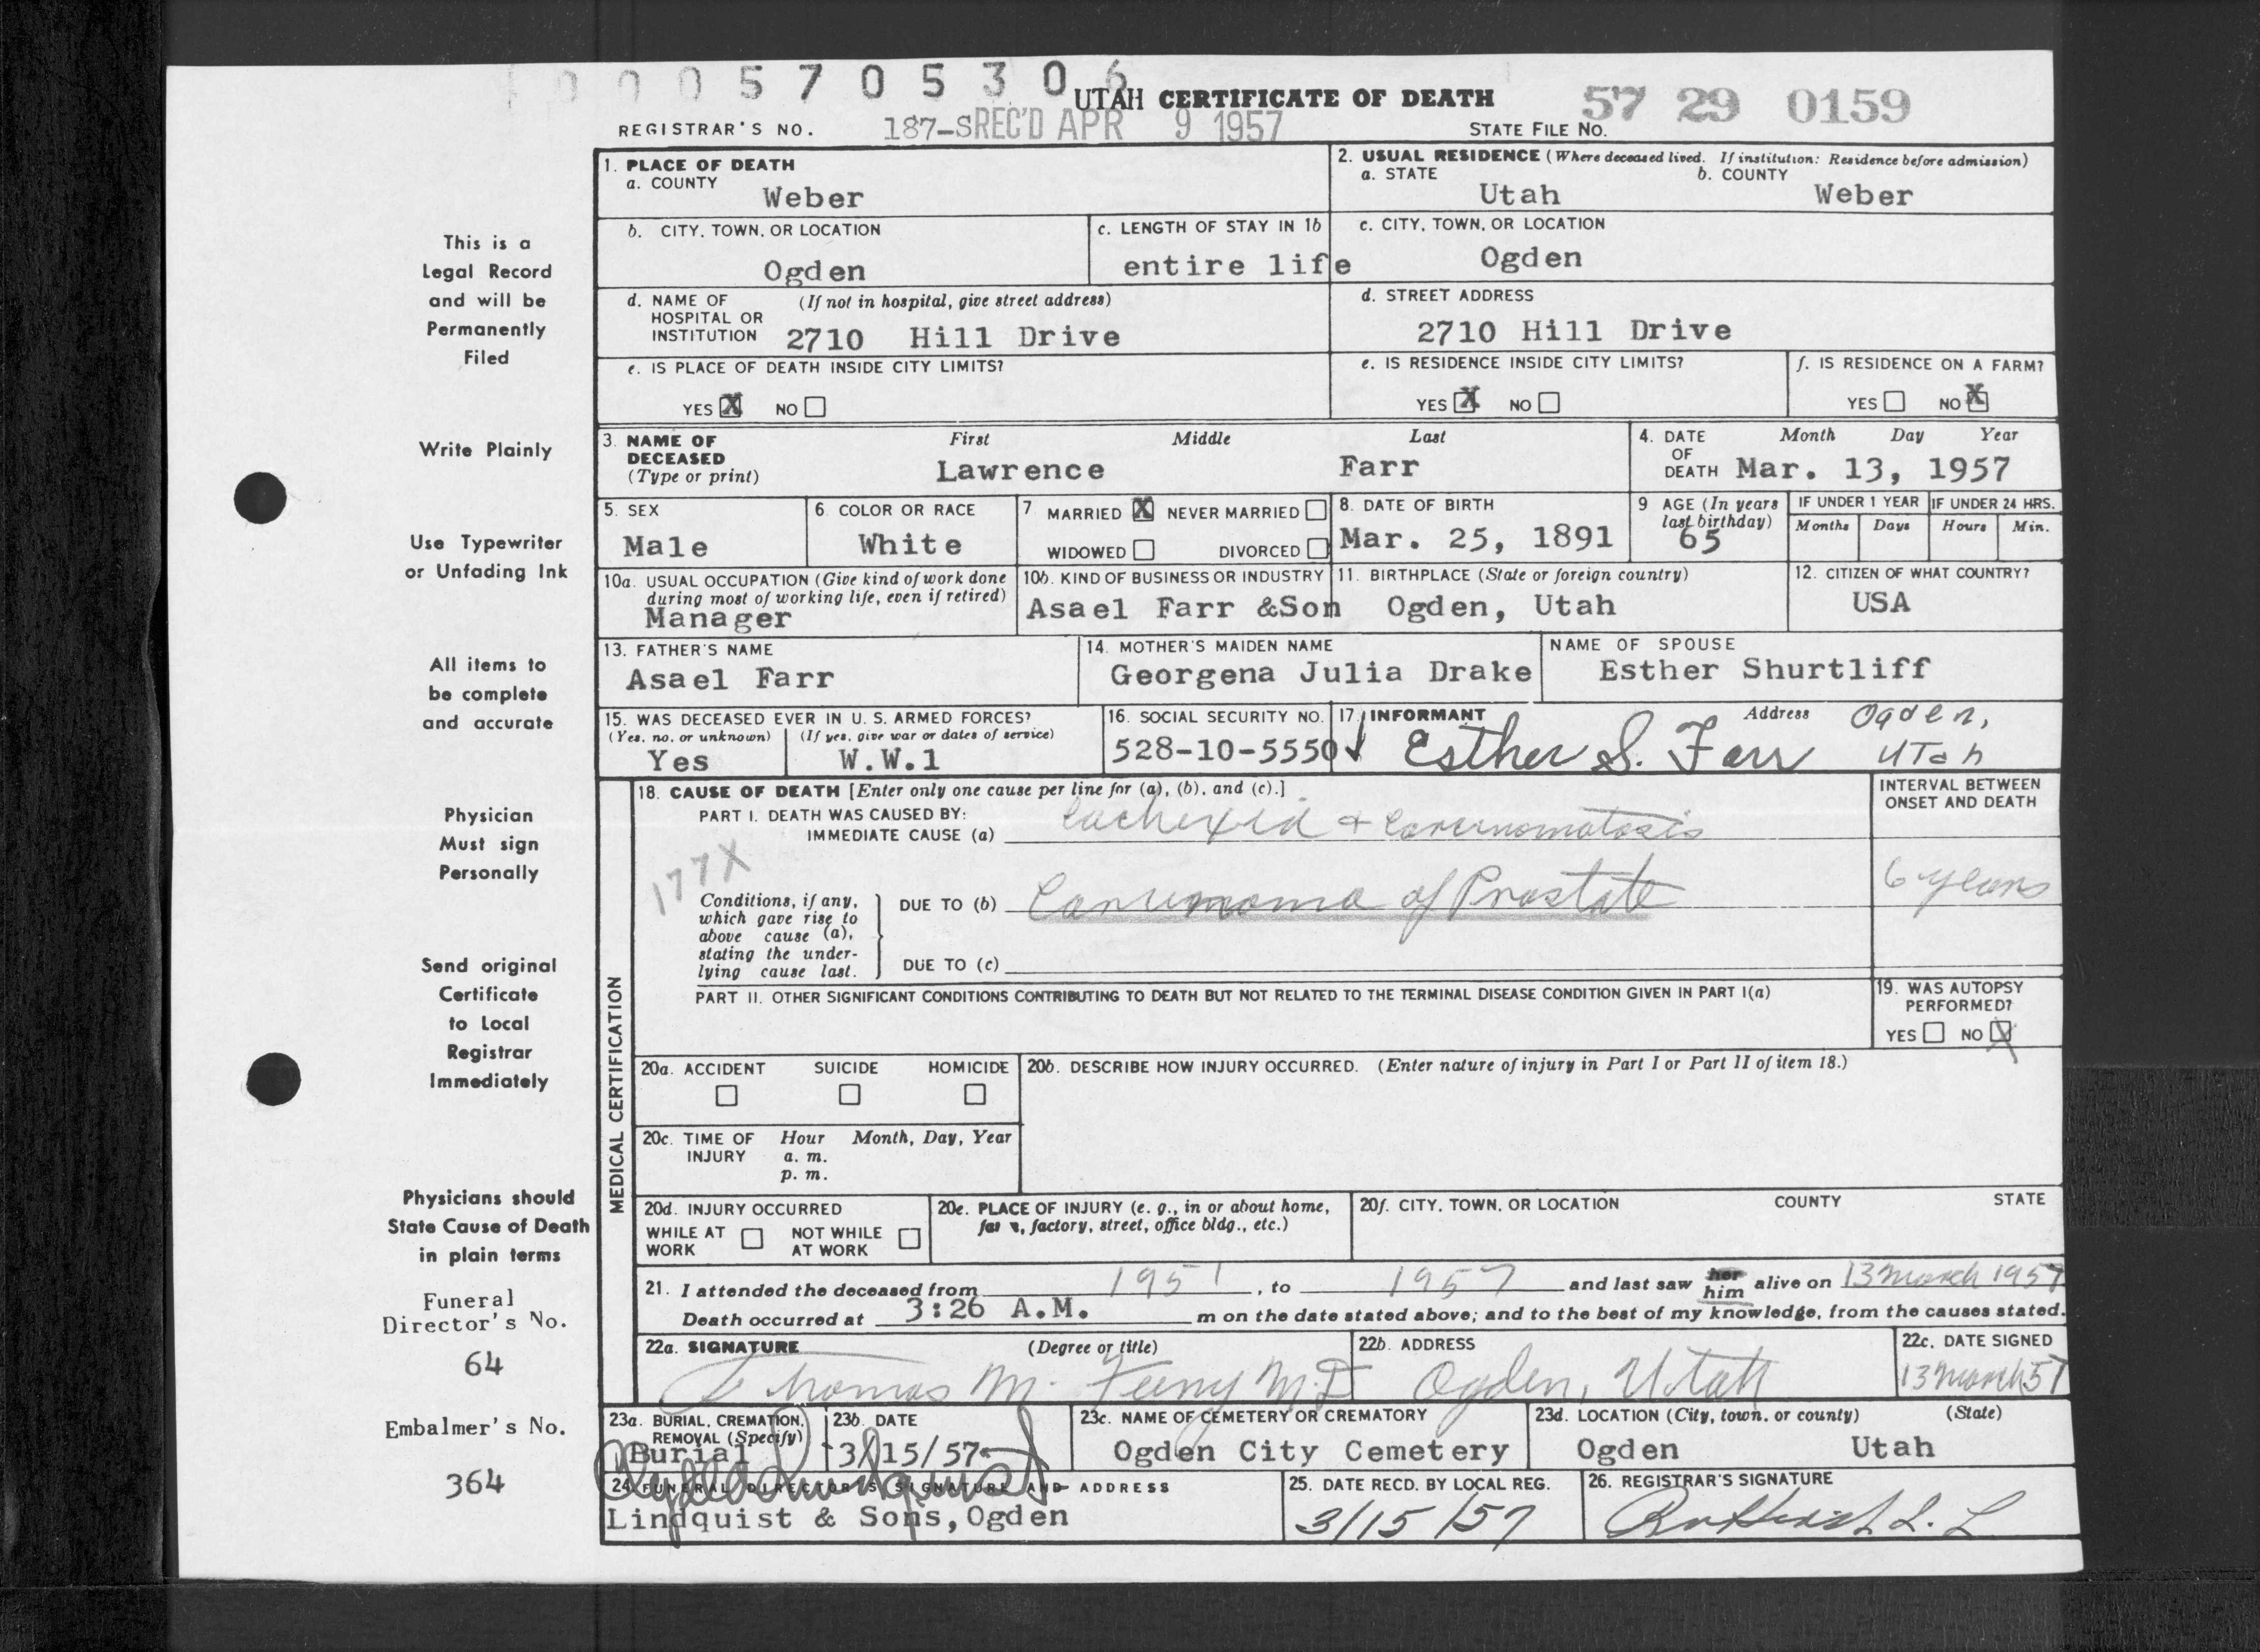 0005705306
UTAH CERTIFICATE OF DEATH
57 29 0159
REGISTRAR'S NO. 187-S REC'D APR 9 1957 STATE FILE NO.
1. PLACE OF DEATH
a. COUNTY
Weber
2. USUAL RESIDENCE (Where deceased lived. If institution: Residence before admission)
a. STATE b. COUNTY
Utah Weber
b. CITY, TOWN, OR LOCATION
Ogden
c. LENGTH OF STAY IN 1b
entire life
c. CITY, TOWN, OR LOCATION
Ogden
d. NAME OF (If not in hospital, give street address)
HOSPITAL OR
INSTITUTION 2710 Hill Drive
d. STREET ADDRESS
2710 Hill Drive
e. IS PLACE OF DEATH INSIDE CITY LIMITS?
YES X NO
e. IS RESIDENCE INSIDE CITY LIMITS?
YES X NO
f. IS RESIDENCE ON A FARM?
YES NO X
3. NAME OF First Middle Last
DECEASED
(Type or print) Lawrence Farr
4. DATE Month Day Year
OF
DEATH Mar. 13, 1957
5. SEX
Male
6. COLOR OR RACE
White
7 MARRIED X NEVER MARRIED
WIDOWED DIVORCED
8. DATE OF BIRTH
Mar. 25, 1891
9 AGE (In years
last birthday)
65
IF UNDER 1 YEAR
Months Days
IF UNDER 24 HRS.
Hours Min.
10a. USUAL OCCUPATION (Give kind of work done
during most of working life, even if retired)
Manager
10b. KIND OF BUSINESS OR INDUSTRY
Asael Farr &Son
11. BIRTHPLACE (State or foreign country)
Ogden, Utah
12. CITIZEN OF WHAT COUNTRY?
USA
13. FATHER'S NAME
Asael Farr
14. MOTHER'S MAIDEN NAME
Georgena Julia Drake
NAME OF SPOUSE
Esther Shurtliff
15. WAS DECEASED EVER IN U. S. ARMED FORCES?
(Yes, no, or unknown) (If yes, give war or dates of service)
Yes W.W.1
16. SOCIAL SECURITY NO.
528-10-5550
17. INFORMANT Address
Esther S. Farr Ogden,
Utah
MEDICAL CERTIFICATION
18. CAUSE OF DEATH [Enter only one cause per line for (a), (b), and (c).]
PART I. DEATH WAS CAUSED BY:
IMMEDIATE CAUSE (a) Cachexia & Carcinomatosis
INTERVAL BETWEEN
ONSET AND DEATH
177X
Conditions, if any,
which gave rise to
above cause (a),
stating the under-
lying cause last.
DUE TO (b) Carcinoma of Prostate
6 years
DUE TO (c)
PART II. OTHER SIGNIFICANT CONDITIONS CONTRIBUTING TO DEATH BUT NOT RELATED TO THE TERMINAL DISEASE CONDITION GIVEN IN PART I(a)
19. WAS AUTOPSY
PERFORMED?
YES NO X
20a. ACCIDENT SUICIDE HOMICIDE
20b. DESCRIBE HOW INJURY OCCURRED. (Enter nature of injury in Part I or Part II of item 18.)
20c. TIME OF Hour Month, Day, Year
INJURY a. m.
p. m.
20d. INJURY OCCURRED
WHILE AT NOT WHILE
WORK AT WORK
20e. PLACE OF INJURY (e. g., in or about home,
factory, street, office bldg., etc.)
20f. CITY, TOWN, OR LOCATION COUNTY STATE
21. I attended the deceased from 1951, to 1957 and last saw her him alive on 13 March 1957
Death occurred at 3:26 A.M. m on the date stated above; and to the best of my knowledge, from the causes stated.
22a. SIGNATURE (Degree or title)
Thomas M. Feeny M.D
22b. ADDRESS
Ogden, Utah
22c. DATE SIGNED
13 March 57
23a. BURIAL, CREMATION,
REMOVAL (Specify)
Burial
23b. DATE
3/15/57
23c. NAME OF CEMETERY OR CREMATORY
Ogden City Cemetery
23d. LOCATION (City, town, or county) (State)
Ogden Utah
24. FUNERAL DIRECTOR'S SIGNATURE AND ADDRESS
Lindquist & Sons, Ogden
25. DATE RECD. BY LOCAL REG.
3/15/57
26. REGISTRAR'S SIGNATURE
This is a
Legal Record
and will be
Permanently
Filed
Write Plainly
Use Typewriter
or Unfading Ink
All items to
be complete
and accurate
Physician
Must sign
Personally
Send original
Certificate
to Local
Registrar
Immediately
Physicians should
State Cause of Death
in plain terms
Funeral
Director's No.
64
Embalmer's No.
364